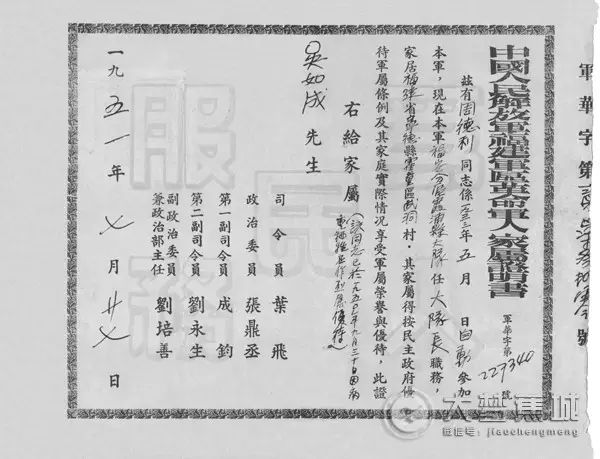 中國人民解放軍福建軍區革命軍人家屬證明書
軍華字第 號
軍華字第
227340
號
茲有周德利同志係一九三三年五月 日自動參加
本軍,現在本軍福安分區霞浦縣大隊任大隊長職務,
家居福建省寧德縣霍童區 洞村。其家屬得按民主政府優
待軍屬條例及其家庭實際情況享受軍屬榮譽與優待,此證
(該同志已於一九五〇年九月三十日因病
右給家屬
吳如成 先生
司令員 葉飛
政治委員 張鼎丞
第一副司令員 成鈞
第二副司令員 劉永生
副政治委員
兼政治部主任 劉培善
一九五一年七月廿七日
服務
人民
大梦蕉城
微信号:jiaochengmeng